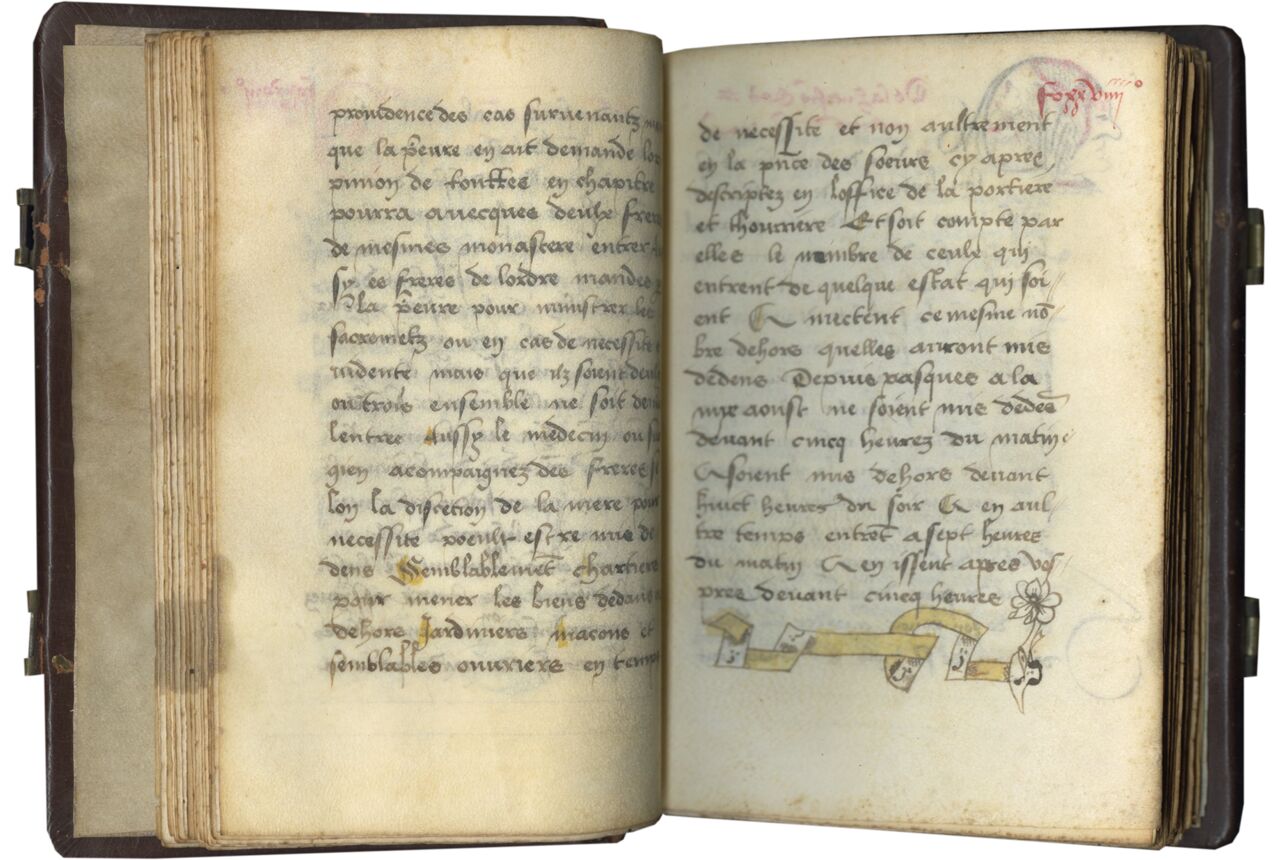 prouidence des cas suruenantz
que la p̃eure en ait demande lo
pinion de touttes en chapitre
pourra auecques deulx frere
de mesmes monastere entrer
sy es freres de lordre mandes
la p̃eure pour ministrer les
sacremẽtz ou en cas de necessite
uidente mais que ilz soient deulx
ou trois ensemble ne soit de
lentree Aussy le medecin ou su
gien acompaignez des freres se
lon la discretion de la mere pour
necessite poeult estre mis de
dens Semblablemẽt chartiers
pour mener les biens dedans
dehors Jardiniers macons et
semblables ouuriers en temps
fo xxviiii
de necessite et non aultrement
en la pñce des soeurs cy apres
descriptez en loffice de la portiere
et thourriere Et soit compte par
elles le nombre de ceulx qui
entrent de quelque estat qui soi-
ent & mectent ce mesme nõ
bre dehors quelles auront mis
dedens Depuis pasques a la
my aoust ne soient mis dedẽs
deuant cincq heurez du matin
& soient mis dehors deuant
huict heures du soir & en aul-
tre temps entrẽt a sept heures
du matin & en issent apres ves-
pres deuant cincq heures